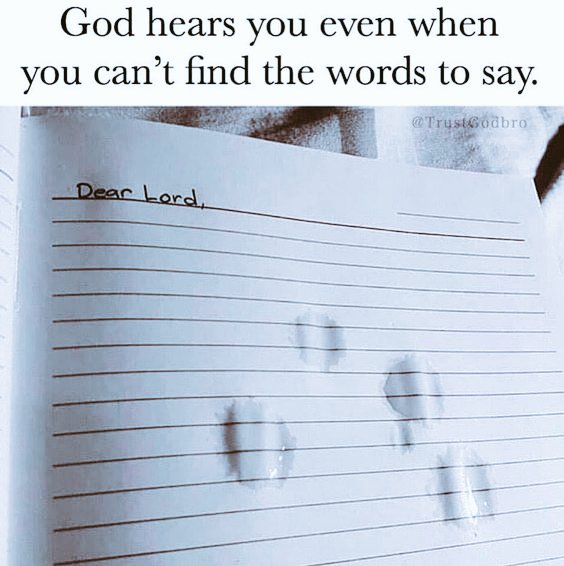 God hears you even when
you can't find the words to say.
@TrustGodbro
Dear Lord,